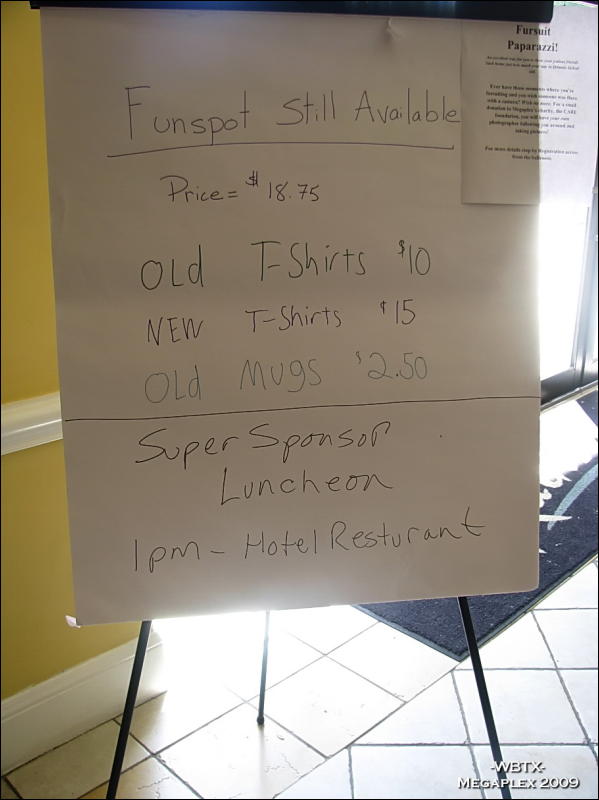 Funspot Still Available
Price = $18.75
OLD T-Shirts $10
NEW T-Shirts $15
OLD MUGS $2.50
Super Sponsor
Luncheon
1pm - Hotel Resturant
Fursuit
Paparazzi!
Ever have those moments where you're
fursuiting and you wish someone was there
with a camera? Wish no more. For a small
donation to Megaplex's charity, the CARE
foundation, you will have your own
photographer following you around and
taking pictures!
For more details stop by Registration across
from the ballroom.
-WBTX-
MEGAPLEX 2009